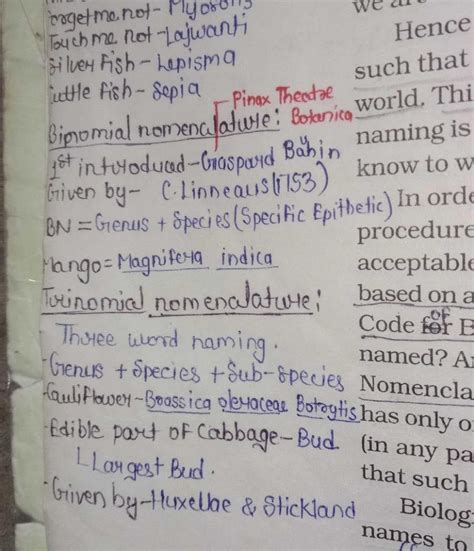 Forget me not - Myosotis
Touch me not - Lajwanti
Silver Fish - Lepisma
Cuttle Fish - Sepia
Pinax Theatre
Botanica
Binomial nomenclature:
1st introduced - Graspard Bahin
Given by - C. Linneaus (1753)
BN = Genus + Species (Specific Epithetic)
Mango = Magnifera indica
Trinomial nomenclature:
Three word naming.
- Genus + Species + Sub-species
- Cauliflower - Brassica oleraceae Botrytis
- Edible part of Cabbage - Bud
Largest Bud.
- Given by - Huxellae & Stickland
we are
Hence
such that
world. Thi
naming is
know to w
In orde
procedure
acceptable
based on a
Code for of B
named? A
Nomencla
has only o
(in any pa
that such
Biolog
names to